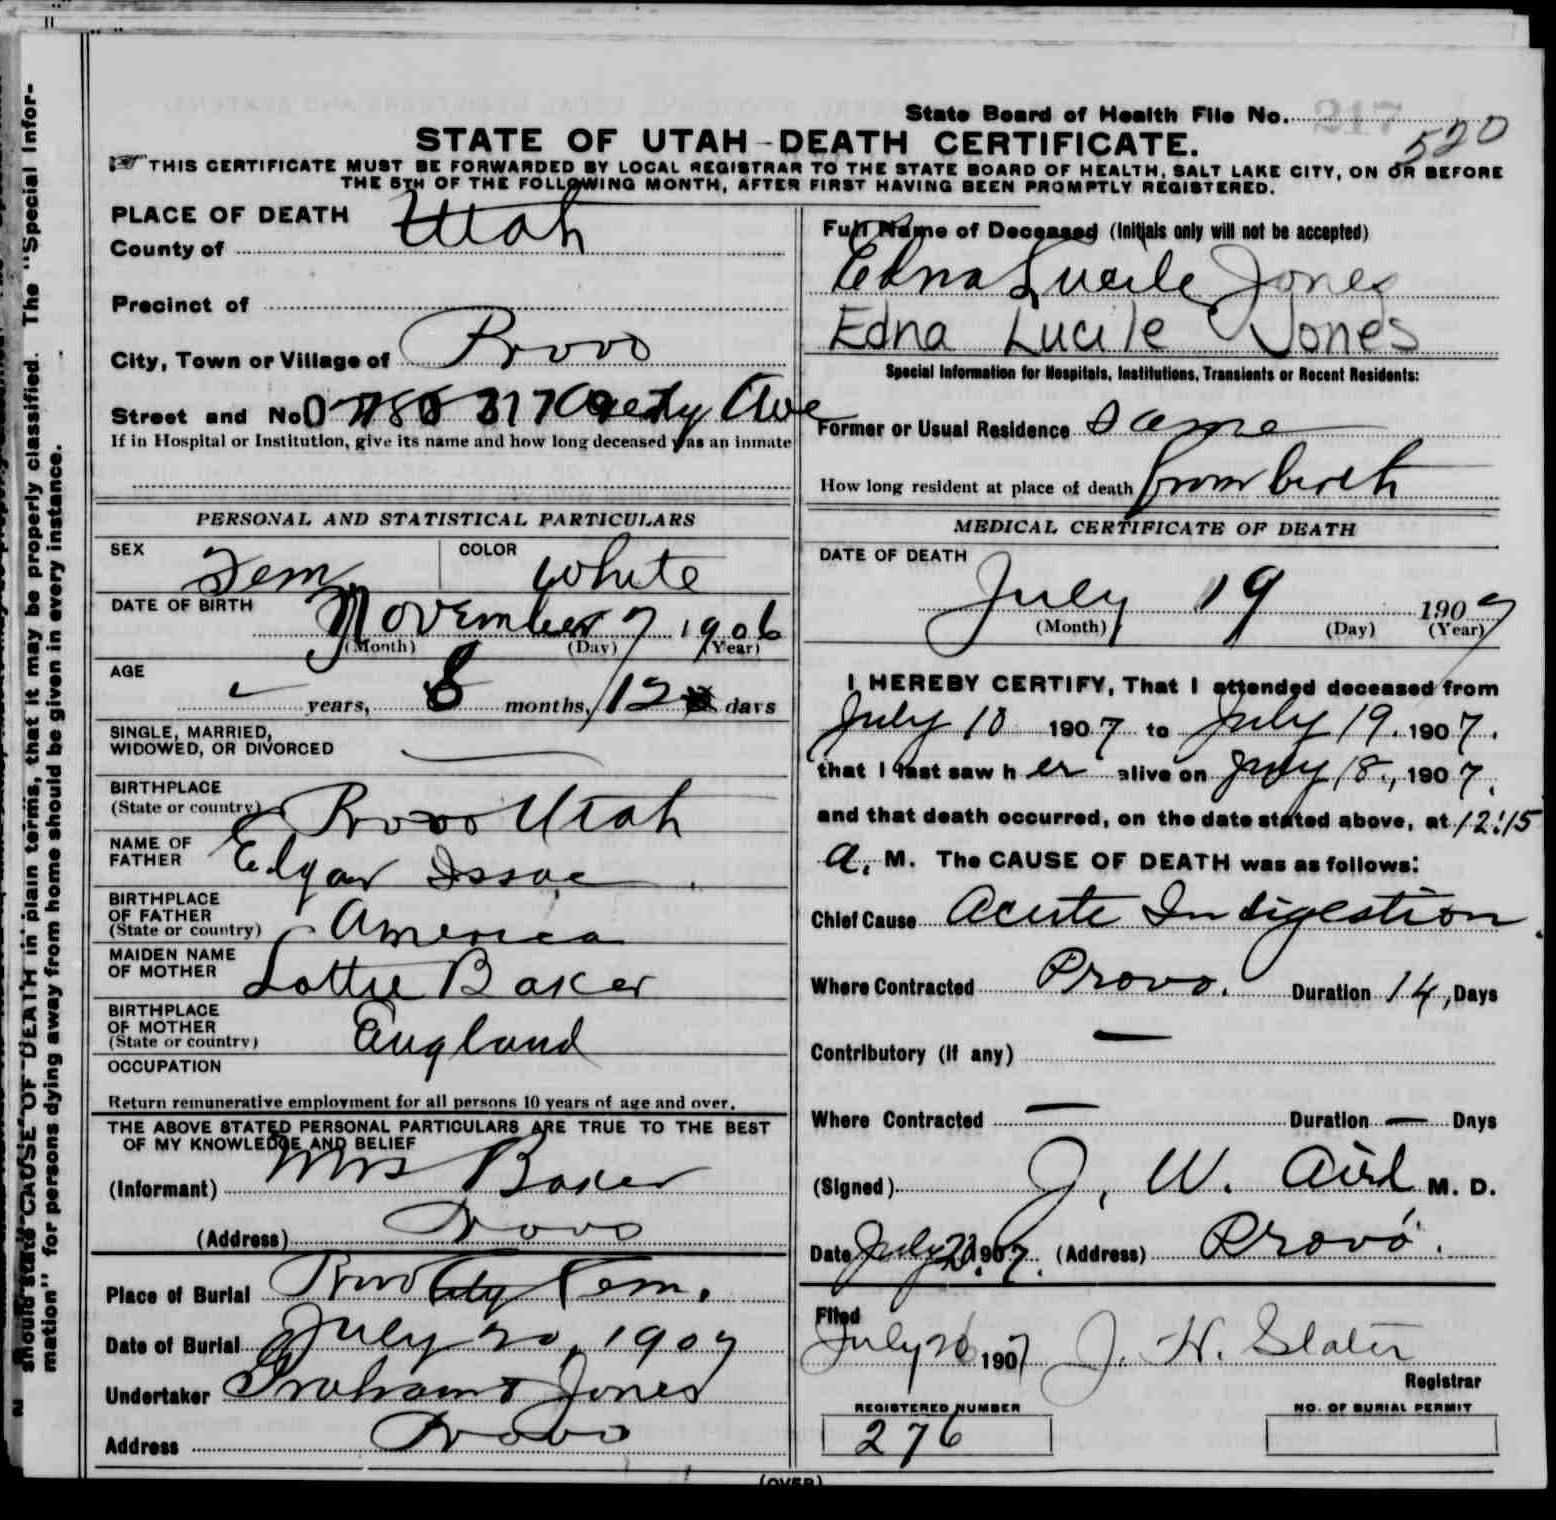 State Board of Health File No. 217
520
STATE OF UTAH - DEATH CERTIFICATE.
THIS CERTIFICATE MUST BE FORWARDED BY LOCAL REGISTRAR TO THE STATE BOARD OF HEALTH, SALT LAKE CITY, ON OR BEFORE
THE 5TH OF THE FOLLOWING MONTH, AFTER FIRST HAVING BEEN PROMPTLY REGISTERED.
PLACE OF DEATH
County of Utah
Precinct of
City, Town or Village of Provo
Street and No. Ave
If in Hospital or Institution, give its name and how long deceased was an inmate
PERSONAL AND STATISTICAL PARTICULARS
SEX Fem COLOR White
DATE OF BIRTH November 7 1906
(Month) (Day) (Year)
AGE years, 8 months, 12 days
SINGLE, MARRIED,
WIDOWED, OR DIVORCED
BIRTHPLACE
(State or country) Provo Utah
NAME OF
FATHER Edgar Issac
BIRTHPLACE
OF FATHER
(State or country) America
MAIDEN NAME
OF MOTHER Lottie Baker
BIRTHPLACE
OF MOTHER
(State or country) England
OCCUPATION
Return remunerative employment for all persons 10 years of age and over.
THE ABOVE STATED PERSONAL PARTICULARS ARE TRUE TO THE BEST
OF MY KNOWLEDGE AND BELIEF
(Informant) Mrs Baker
(Address) Provo
Place of Burial Provo City Cem.
Date of Burial July 20, 1907
Undertaker Graham & Jones
Address Provo
Full Name of Deceased (Initials only will not be accepted)
Edna Lucile Jones
Edna Lucile Jones
Special Information for Hospitals, Institutions, Transients or Recent Residents:
Former or Usual Residence Same
How long resident at place of death from birth
MEDICAL CERTIFICATE OF DEATH
DATE OF DEATH
July 19 1907
(Month) (Day) (Year)
I HEREBY CERTIFY, That I attended deceased from
July 10 1907 to July 19. 1907.
that I last saw her alive on July 18., 1907.
and that death occurred, on the date stated above, at 12:15
a. M. The CAUSE OF DEATH was as follows:
Chief Cause Acute Indigestion.
Where Contracted Provo. Duration 14, Days
Contributory (if any) —
Where Contracted — Duration — Days
(Signed) J. W. Aird M. D.
Date July 1907. (Address) Provo.
Filed
July 20 1907 J. H. Slater
Registrar
REGISTERED NUMBER
276
NO. OF BURIAL PERMIT
(OVER)
should state CAUSE OF DEATH in plain terms, that it may be properly classified. The "Special Infor-
mation" for persons dying away from home should be given in every instance.